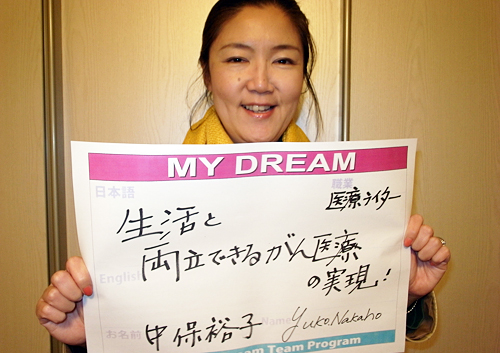 MY DREAM
日本語
職業
医療ライター
生活と
両立できるがん医療
の実現!
English
お名前
中保裕子
Name
Yuko Nakaho
Team Program